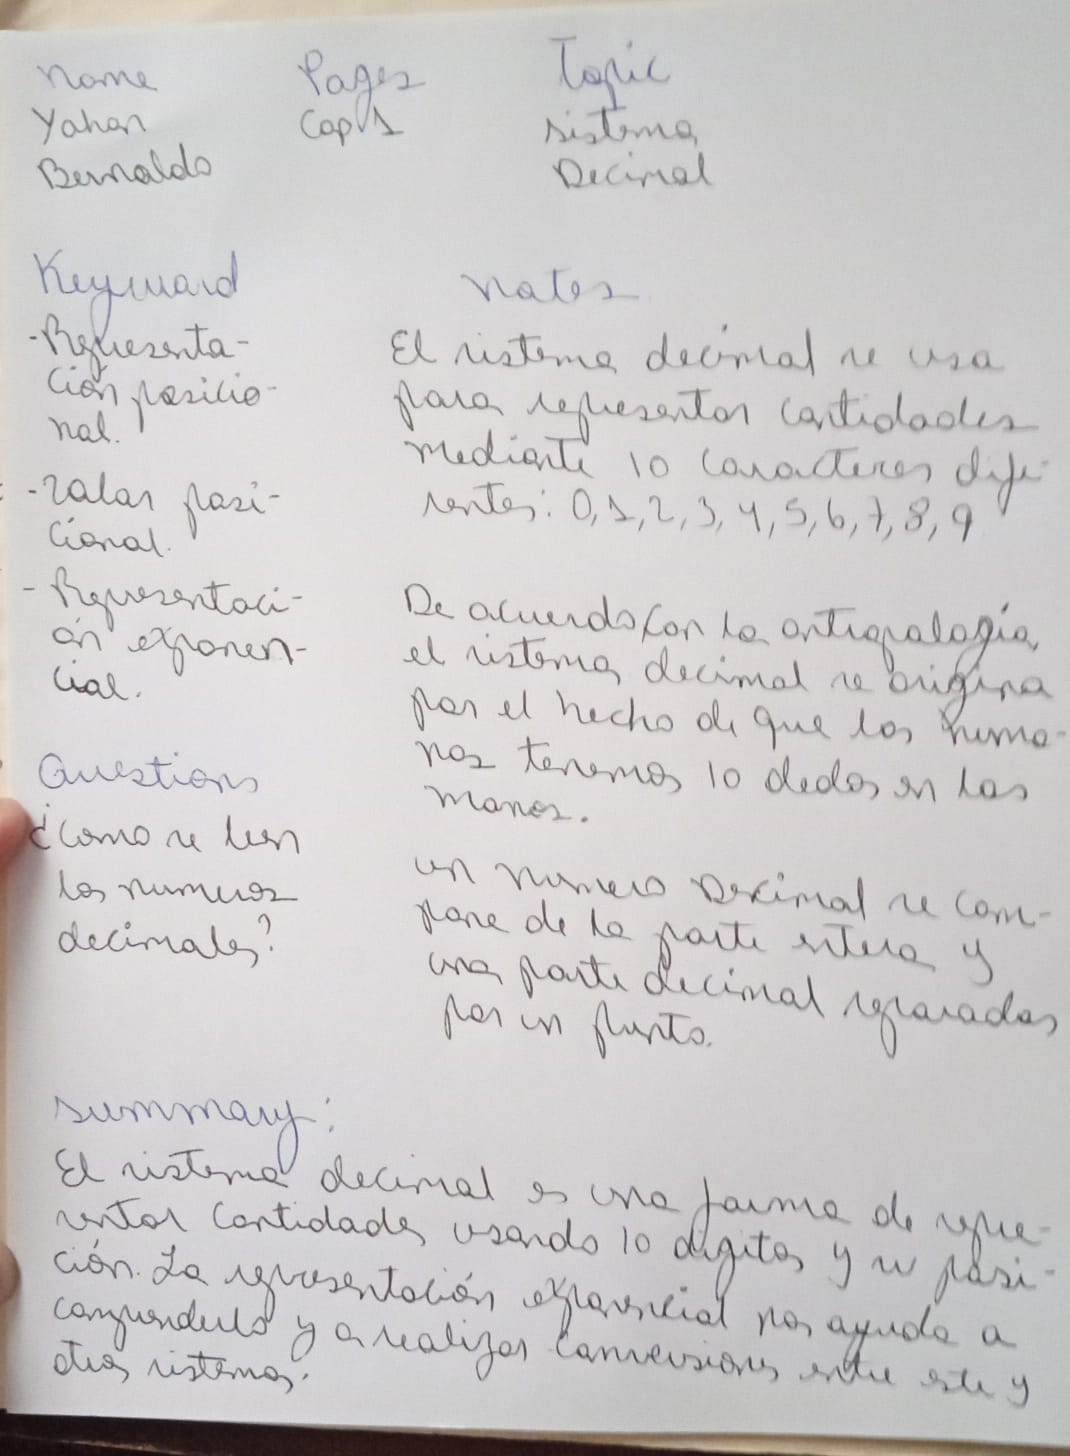 Name Pages Topic
Yahan Cap 1 sistema
Bernaldo Decimal
Keyword
-Representa-
ción posicio-
nal.
-Valor posi-
cional.
-Representaci-
ón exponen-
cial.
Questions
¿Como se leen
los numeros
decimales?
Notes
El sistema decimal se usa
para representar cantidades
mediante 10 caracteres dife-
rentes: 0,1,2,3,4,5,6,7,8,9
De acuerdo con la antropología,
el sistema decimal se origina
por el hecho de que los huma-
nos tenemos 10 dedos en las
manos.
un numero Decimal se com-
pone de la parte entera y
una parte decimal separadas
por un punto.
Summary:
El sistema decimal es una forma de repre-
sentar cantidades usando 10 digitos y su posi-
ción. La representación exponencial nos ayuda a
comprenderlo y a realizar conversiones entre este y
otros sistemas.